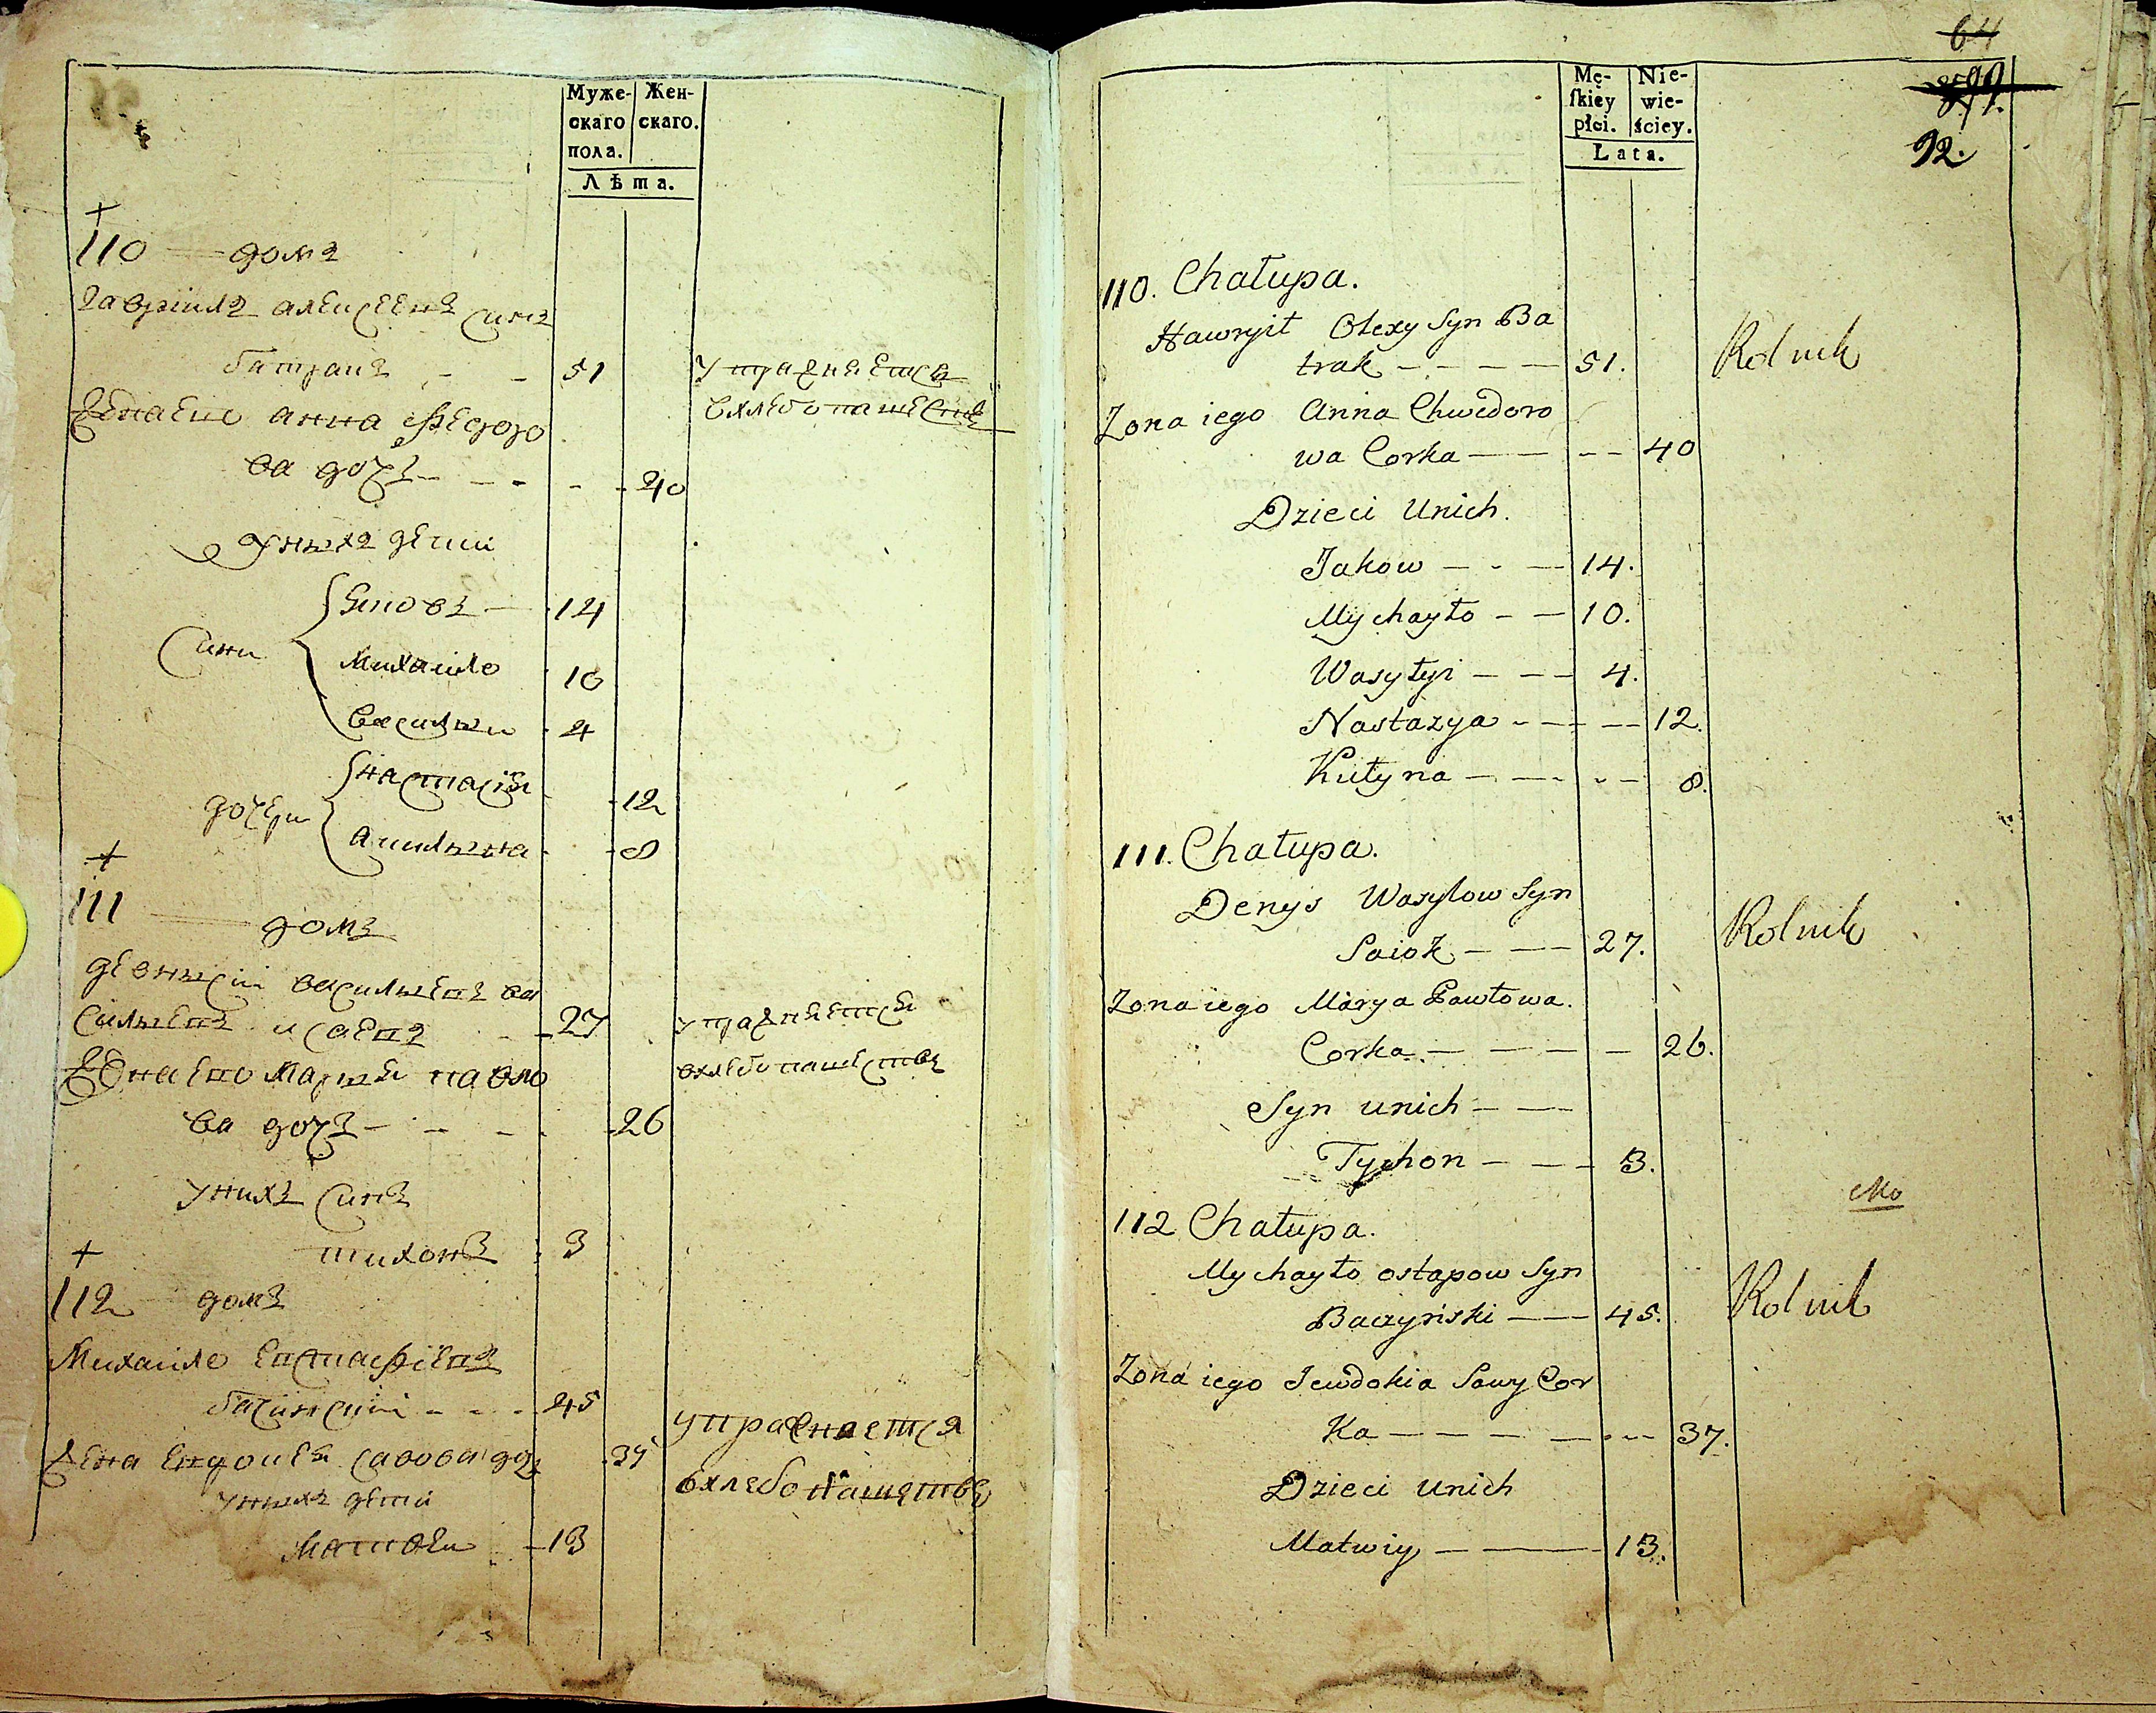 Муже-
скаго
пола.
Жен-
скаго.
Лѣта.
110 домъ
Гавріилъ Алексеевъ синъ
батракъ 51 упражняется
Жена его Анна Федоро в хлебопашестве
ва дочъ 40
У ныхъ дети
Сини
Яковъ 14
Михаило 10
Василыи 4
дочери
Настасія 12
Акилына 8
111 домъ
Васильевъ ва
сильевъ 27 упражняется
Жена его Марыя Павло в хлебопашествѣ
ва дочъ 26
У нихъ синъ
Тихонъ 3
112 домъ
Михаило Евстафіевъ
Бачинский 45 упражнается
Жена Евдокия Савова доч 37 в хлебопашястве
У ныхъ дети
Матвеи 13
64
92.
Mę-
ſkiey
płci.
Nie-
wie-
ściey.
Lata.
110. Chałupa.
Hawryił Olexy Syn Ba
trak 51. Rolnik
Zona iego Anna Chwedoro
wa Corka 40
Dzieci Unich.
Jakow 14.
Mychayło 10.
Wasyłyi 4.
Nastazya 12.
Kułyna 8.
111. Chałupa.
Denys Wasylow Syn
Saiok 27. Rolnik
Zona iego Marya Pawłowa.
Corka 26.
Syn unich
Tychon 3.
112 Chałupa.
Mychayło ostapow Syn
Baczyński 45. Rolnik
Zona iego Jewdokia Sawy Cor
Ka 37.
Dzieci Unich
Matwiy 13.